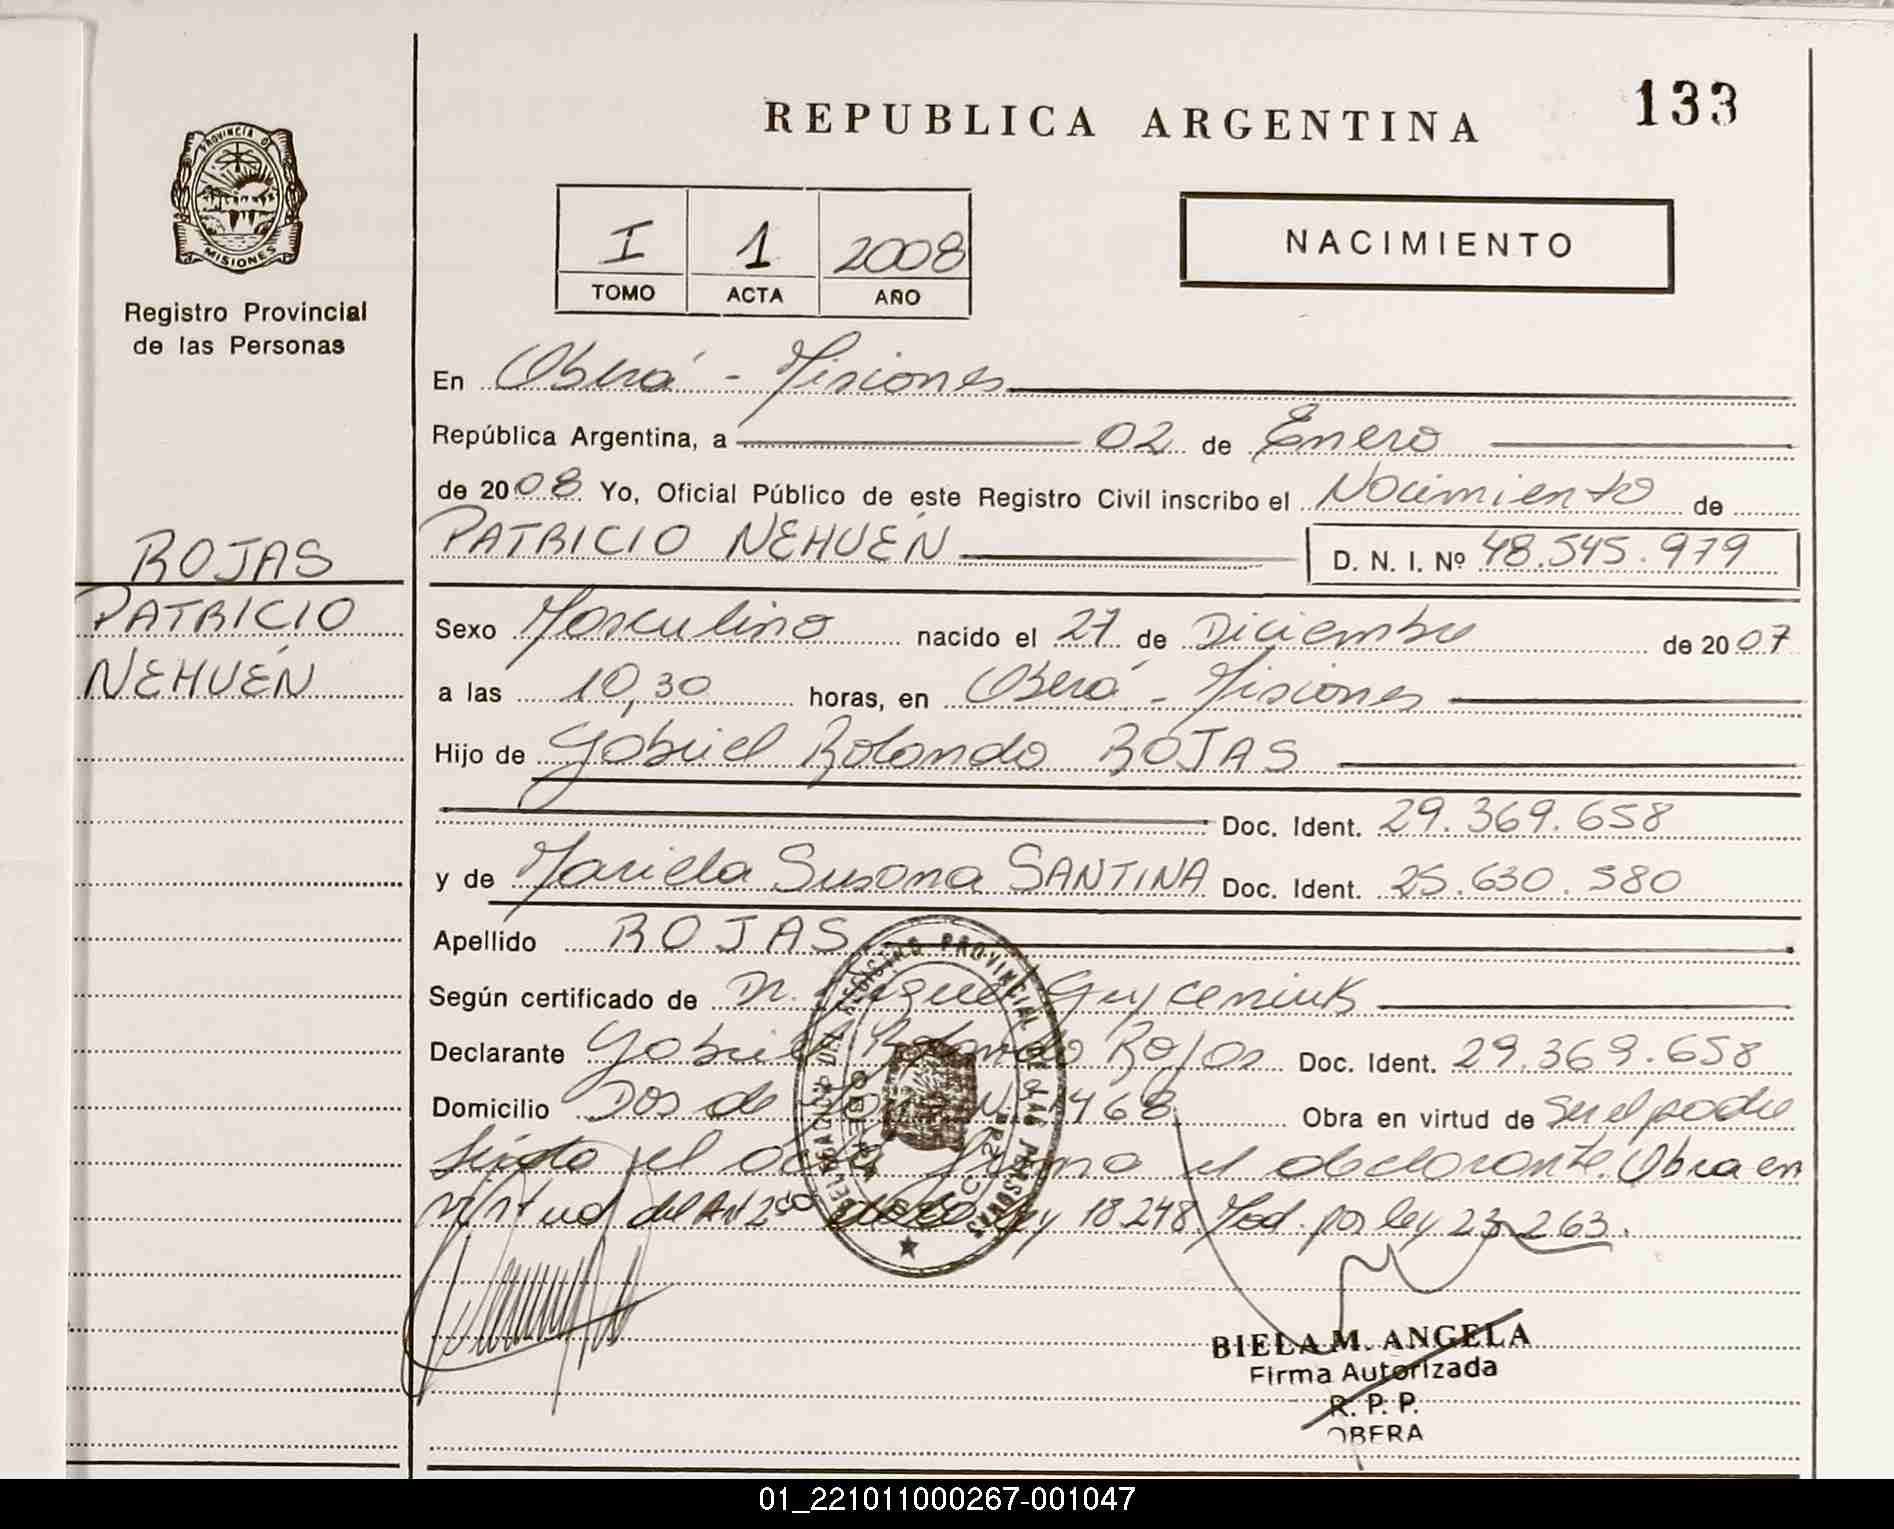 133
REPUBLICA ARGENTINA
PROVINCIA D
MISIONES
Registro Provincial
de las Personas
I 1 2008
TOMO ACTA AÑO
NACIMIENTO
En Oberá - Misiones
República Argentina, a 02 de Enero
de 2008 Yo, Oficial Público de este Registro Civil inscribo el Nacimiento de
PATRICIO NEHUÉN D. N. I. Nº 48.545.979
ROJAS
PATRICIO
NEHUÉN
Sexo Masculino nacido el 27 de Diciembre de 2007
a las 10,30 horas, en Oberá - Misiones
Hijo de Gabriel Rolando ROJAS
Doc. Ident. 29.369.658
y de Mariela Susana SANTINA Doc. Ident. 25.630.580
Apellido ROJAS
Según certificado de Dr. Miguel
Declarante Gabriel Rolando Rojas Doc. Ident. 29.369.658
Domicilio Dos de 1468 Obra en virtud de Ser el padre
Leida el acta firma el declarante. Obra en
virtud del Art 2do de la ley 18.248. Mod. por ley 23.263.
DELEGACION DEL REGISTRO PROVINCIAL DE LAS PERSONAS
BIELA M. ANGELA
Firma Autorizada
R. P. P.
OBERA
01_221011000267-001047